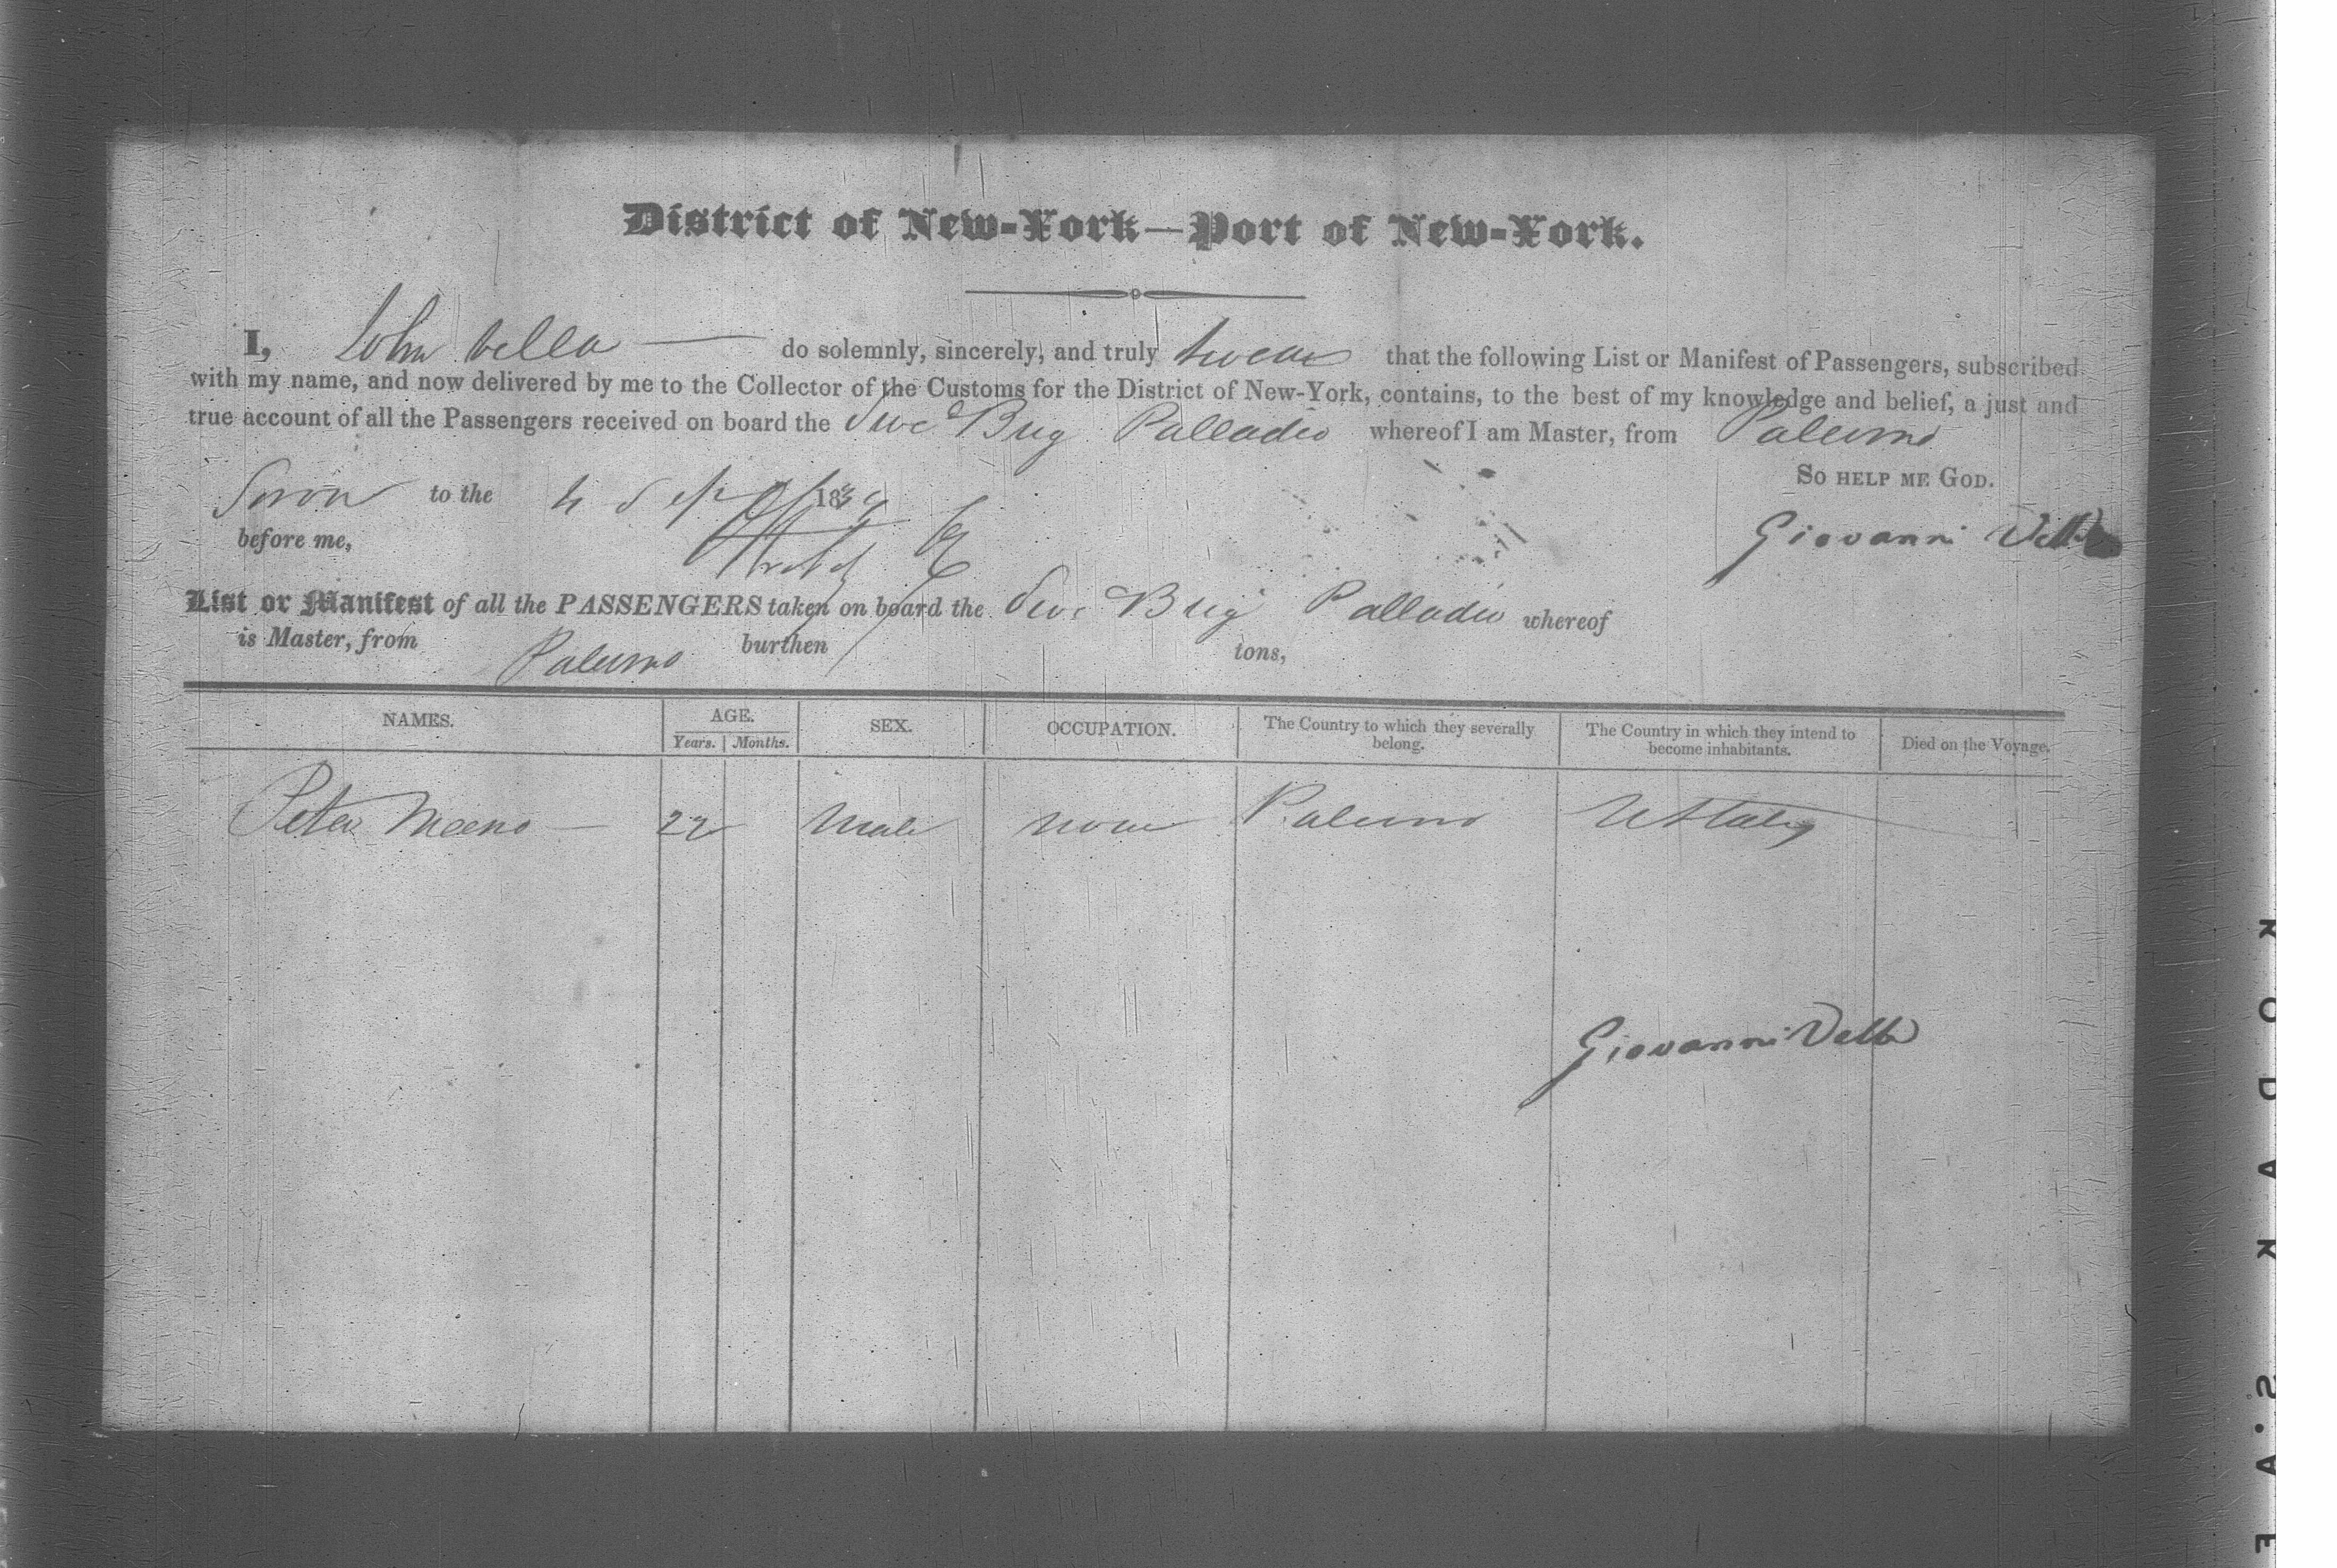 District of New-York—Port of New-York.
I, John Vella — do solemnly, sincerely, and truly swear that the following List or Manifest of Passengers, subscribed
with my name, and now delivered by me to the Collector of the Customs for the District of New-York, contains, to the best of my knowledge and belief, a just and
true account of all the Passengers received on board the Brig Palladio whereof I am Master, from Palermo
So help me God.
Sworn to the 4 Sept 1839
before me,
Giovanni Vella
List or Manifest of all the PASSENGERS taken on board the Brig Palladio whereof
is Master, from Palermo burthen tons,
NAMES. AGE. SEX. OCCUPATION. The Country to which they severally belong. The Country in which they intend to become inhabitants. Died on the Voyage.
Years. Months.
Peter — 22 Male none Palermo U States
Giovanni Vella